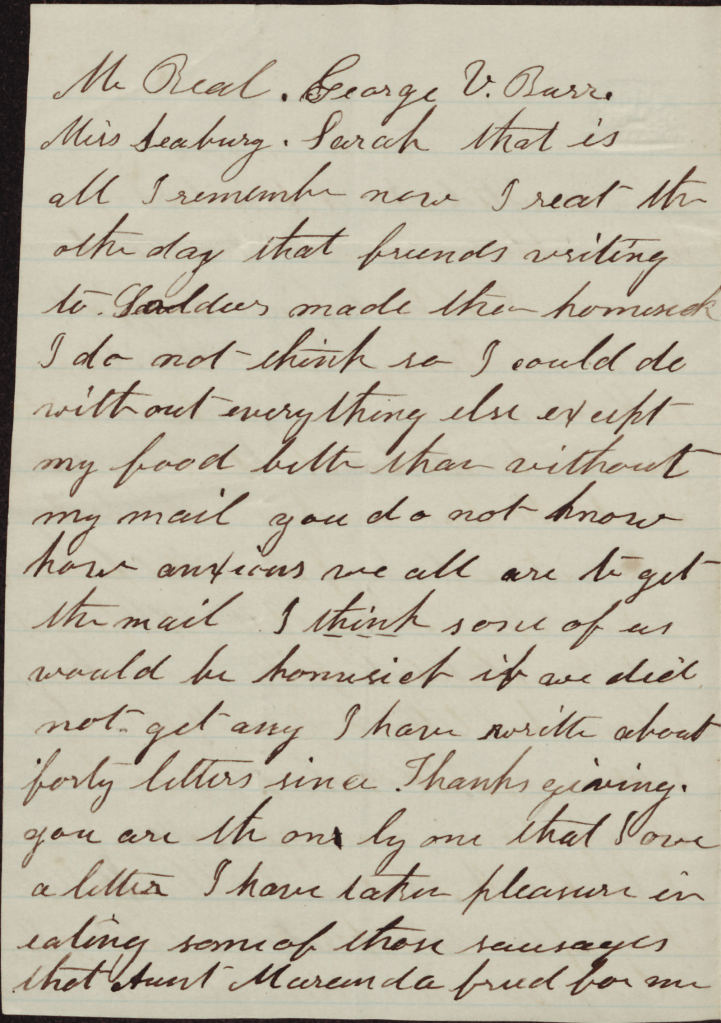 Mr Beal. George V. Barr.
Miss Seabury. Sarah that is
all I remember now I read the
other day that friends writing
to Soldiers made them homesick
I do not think so I could do
without everything else except
my food better than without
my mail you do not know
how anxious we all are to get
the mail I think some of us
would be homesick if we did
not get any I have written about
forty letters since Thanksgiving.
you are the only one that I owe
a letter I have taken pleasure in
eating some of those sausages
that Aunt Maranda fried for me